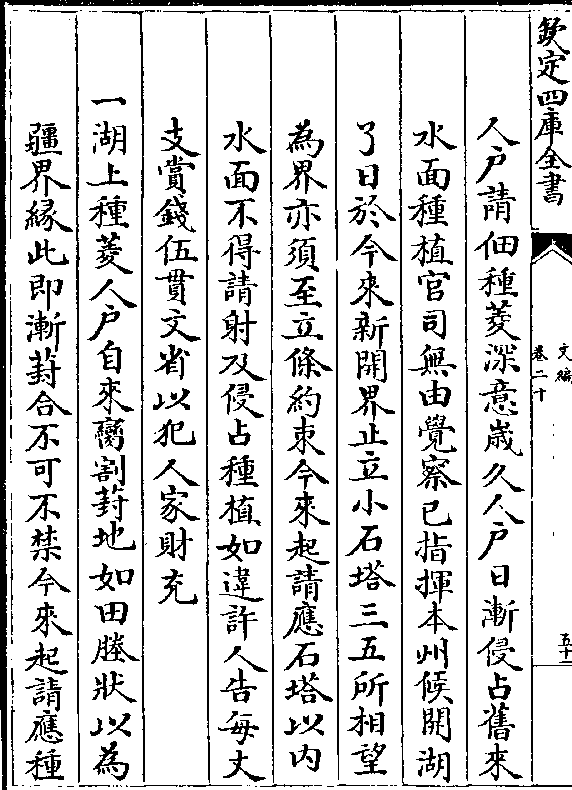 欽定四庫全書
文編
卷二十
五十二
人戸請佃種菱深意歳久人戸日漸侵占舊來
水面種植官司無由覺察已指揮本州候開湖
了日於今來新開界止立小石塔三五所相望
為界亦須至立條約束今來起請應石塔以内
水面不得請射及侵占種植如違許人告每丈
支賞錢伍貫文省以犯人家財充
一湖上種菱人戸自來臠割葑地如田塍狀以為
疆界緣此即漸葑合不可不禁今來起請應種